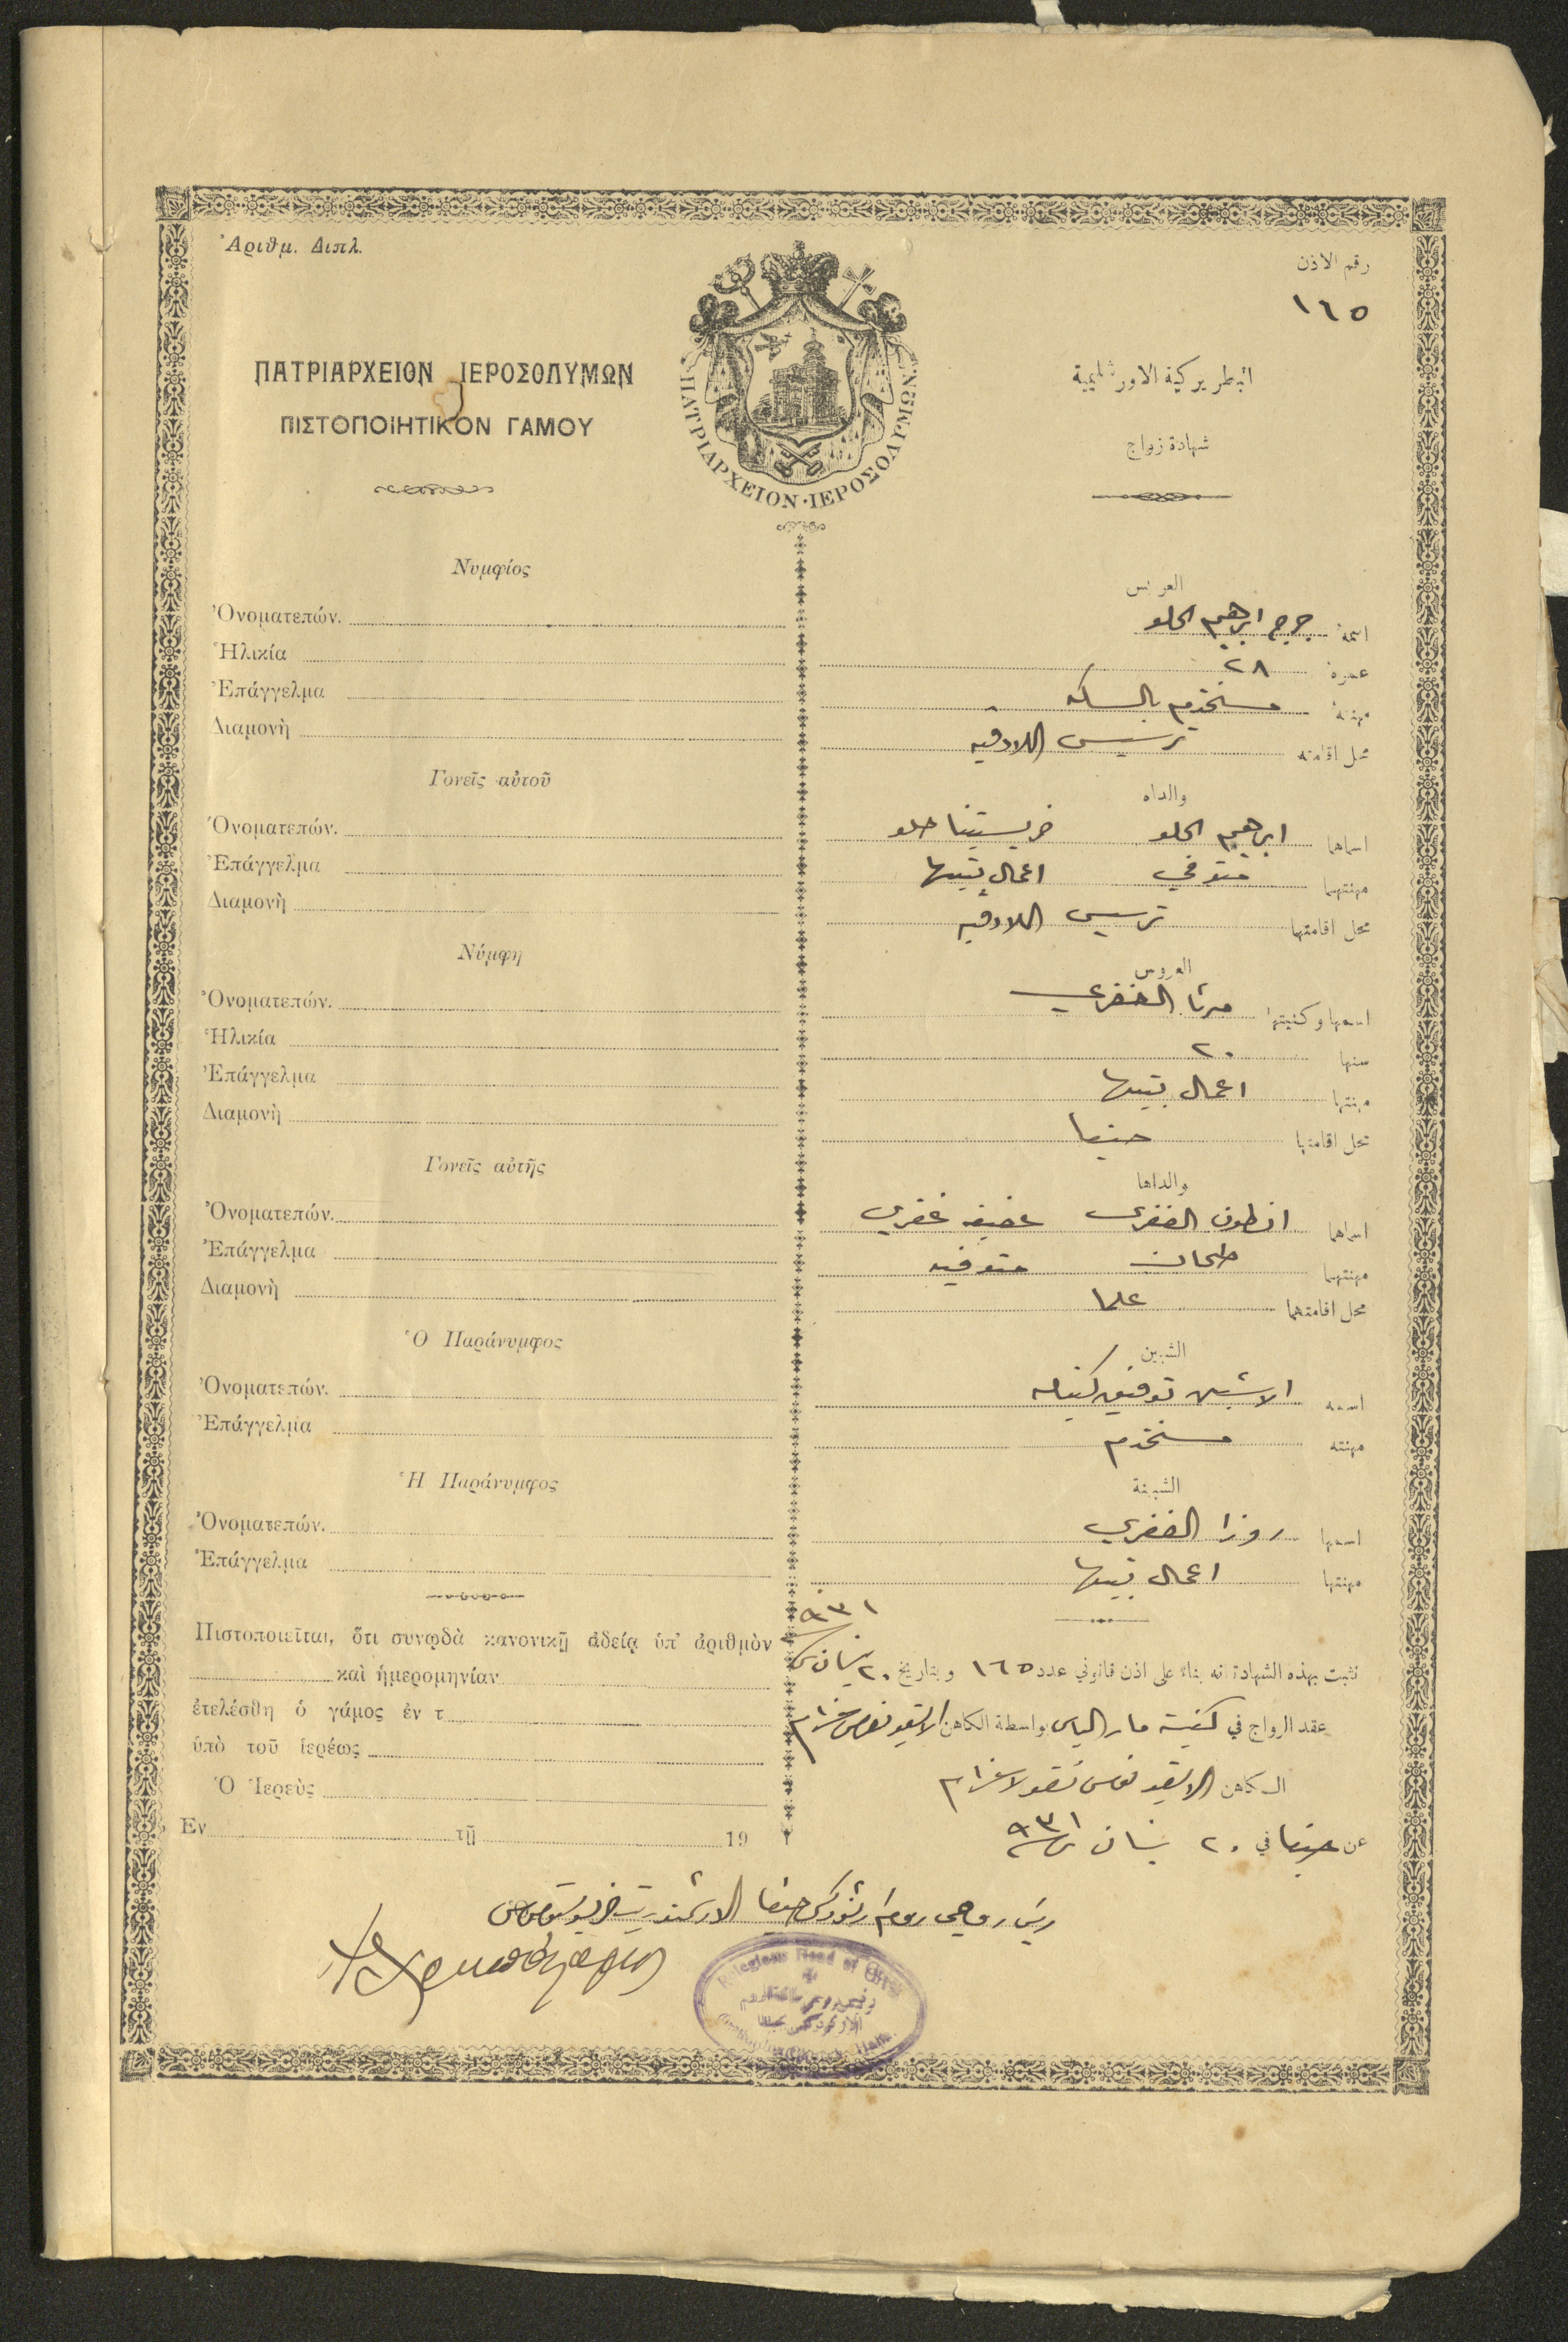 Ἀριθμ. Διπλ.
رقم الاذن
١٦٥
ΠΑΤΡΙΑΡΧΕΙΟΝ ΙΕΡΟΣΟΛΥΜΩΝ
ΠΙΣΤΟΠΟΙΗΤΙΚΟΝ ΓΑΜΟΥ
ΠΑΤΡΙΑΡΧΕΙΟΝ·ΙΕΡΟΣΟΛΥΜΩΝ
البطريركية الاورشليمية
شهادة زواج
Νυμφίος
Ὀνοματεπών.
Ἡλικία
Ἐπάγγελμα
Διαμονὴ
Γονεῖς αὐτοῦ
Ὀνοματεπών.
Ἐπάγγελμα
Διαμονὴ
Νύμφη
Ὀνοματεπών.
Ἡλικία
Ἐπάγγελμα
Διαμονὴ
Γονεῖς αὐτῆς
Ὀνοματεπών.
Ἐπάγγελμα
Διαμονὴ
Ὁ Παράνυμφος
Ὀνοματεπών.
Ἐπάγγελμα
Ἡ Παράνυμφος
Ὀνοματεπών.
Ἐπάγγελμα
Πιστοποιεῖται, ὅτι συνῳδὰ κανονικῇ ἀδείᾳ ὑπ' ἀριθμὸν
καὶ ἡμερομηνίαν
ἐτελέσθη ὁ γάμος ἐν τ
ὑπὸ τοῦ ἱερέως
Ὁ Ἱερεὺς
Ἐν τῇ 19
العريس
اسمه جرج ابرهيم الحلو
عمره ٢٨
مهنته مستخدم بالسكه
محل اقامته ترسيس اللادقيه
والداه
اسماهما ابرهيم الحلو خريستينا حلو
مهنتهما متوفي اعمال بيتها
محل اقامتهما ترسيس اللادقيه
العروس
اسمها وكنيتها مرتا الغفري
سنها ٢٠
مهنتها اعمال بيتها
محل اقامتها حيفا
والداها
اسماهما انطون الغفري عفيفه غفري
مهنتهما طحان متوفيه
محل اقامتهما عكا
الشبين
اسمه الاشبين توفيق
مهنته مستخدم
الشبينة
اسمها روزا الغفري
مهنتها اعمال بيتها
نثبت بهذه الشهادة انه بناء على اذن قانوني عدد ١٦٥ وبتاريخ ٢٠ نيسان ٩٣١
عقد الزواج في كنيسة مار الياس بواسطة الكاهن الايقونومس
الكاهن الايقونومس نقولا
عن حيفا في ٢٠ نيسان ٩٣١
ريس روحي روم ارثوذكس حيفا الارشمندريت
Religious Head of Greek